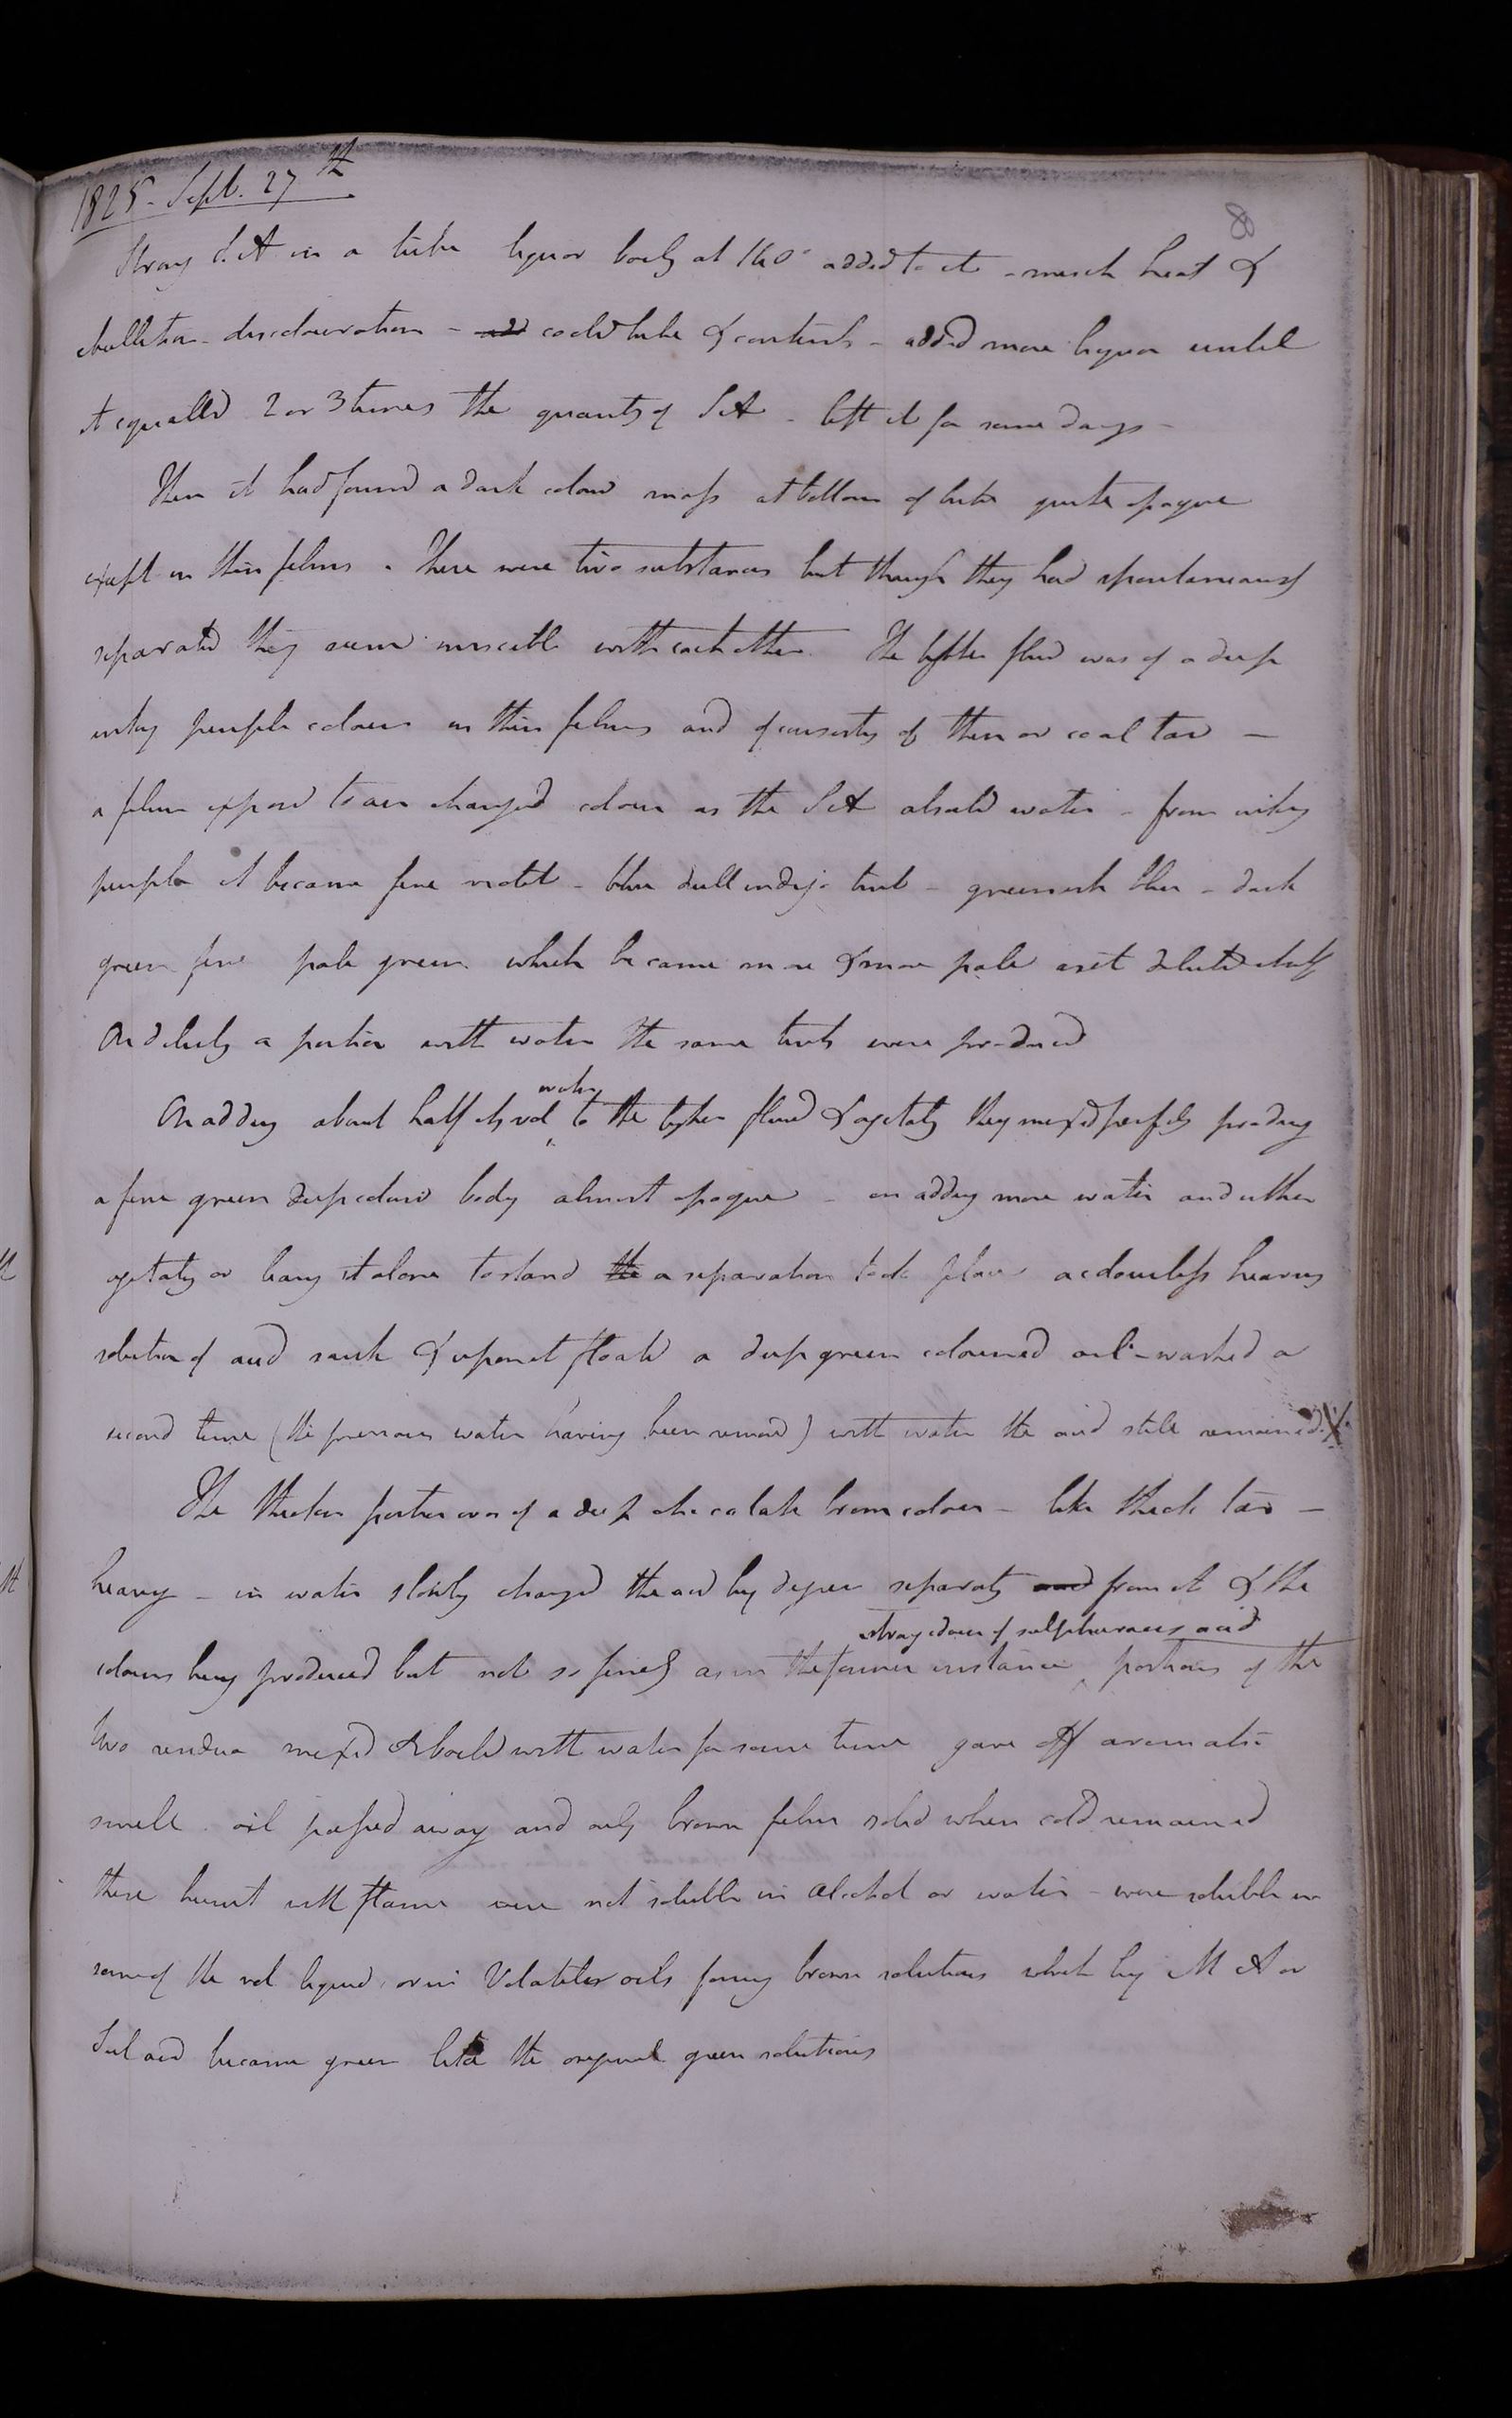 1825. Sept. 27th
8
Strong S.A in a tube liquor boilg at 140° added to it - much heat &
ebullition - discolouration - add cooled tube & contents - added more liquor until
it equalld 2 or 3 times the quanty of S A - left it for some days -
Then it had formd a dark colourd mass at bottom of tube quite opaque
except in thin films . There were two substances but though they had spontaneously
separated they seemd miscible with each other. The lighter fluid was of a deep
inky purple colour in thin films and of consisty of thin coal tar -
a film exposd to air changed colour as the S A absorbd water - from inky
purple it became fine violet - blue dull indigo tint - greenish blue - dark
green fine pale green which became more & more pale as it diluted itself
On dilutg a portion with water the same tints were produced
On addng about half its vol water to the lighter fluid & agitatg they mixed perfectly producg
a fine green deep colourd body almost opaque - on addng more water and either
agitatg or leavg it alone to stand the a separation took place a colourless heavy
solution of acid sank & upon it floated a deep green coloured oil - washed a
second time (the previous water having been removd) with water the acid still remained. X
The thicker portion was of a deep chocolate brown colour - like thick tar -
heavy - in water slowly changed the acid by degrees separatg and from it & the
colours being produced but not so finely as in the former instance strong odour of sulphurous acid portions of the
two residua mixed & boild with water for some time gave off aromatic
smell . oil passed away and only brown films solid when cold remained
these burnt with flame were not soluble in alcohol or water - were soluble in
some of the vol liquid or in Volatile oils formg brown solutions which by M A or
Sul acid became green like the original green solutions